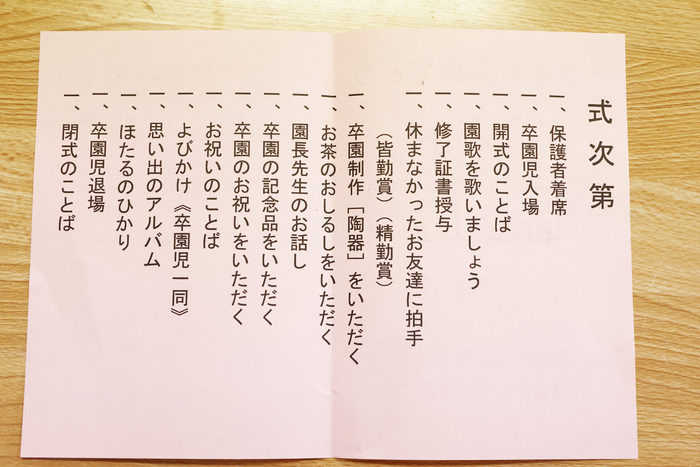 式次第
一、保護者着席
一、卒園児入場
一、開式のことば
一、園歌を歌いましょう
一、修了証書授与
一、休まなかったお友達に拍手
（皆勤賞）（精勤賞）
一、卒園制作［陶器］をいただく
一、お茶のおしるしをいただく
一、園長先生のお話し
一、卒園の記念品をいただく
一、卒園のお祝いをいただく
一、お祝いのことば
一、よびかけ《卒園児一同》
一、思い出のアルバム
一、ほたるのひかり
一、卒園児退場
一、閉式のことば